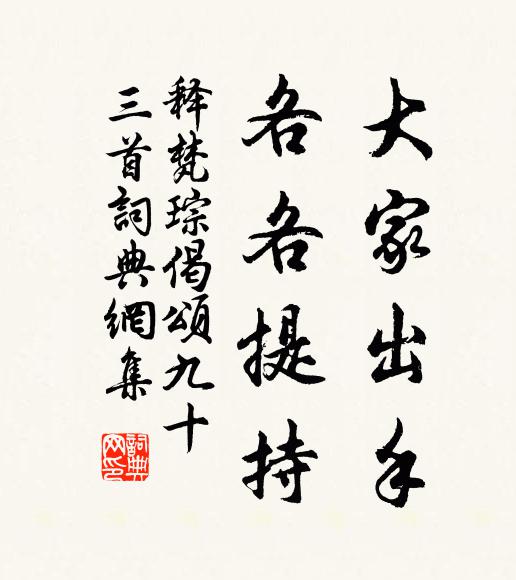 大家出手
各各提持
释梵琮偈颂九十
三首詞典網集
詞典
网印